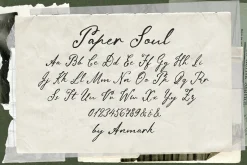 Paper Soul
Aa Bb Cc Dd Ee Ff Gg Hh Ii
Jj Kk Ll Mm Nn Oo Pp Qq Rr
Ss Tt Uu Vv Ww Xx Yy Zz
0123456789&
by Anmark